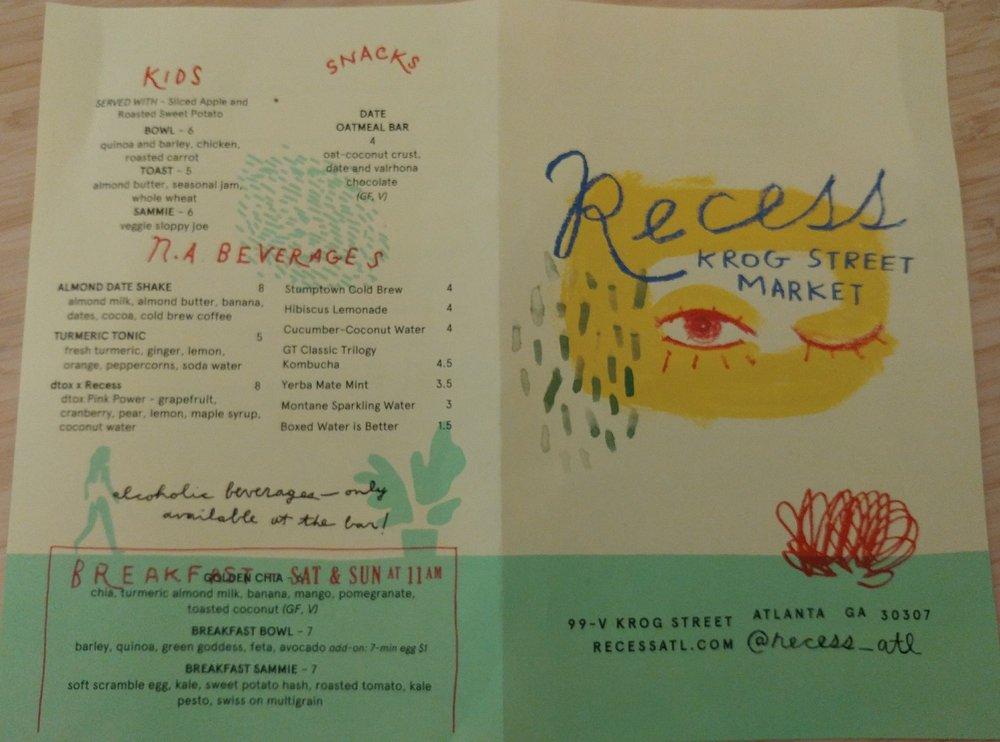 KIDS
SERVED WITH - Sliced Apple and
Roasted Sweet Potato
BOWL - 6
quinoa and barley, chicken,
roasted carrot
TOAST - 5
almond butter, seasonal jam,
whole wheat
SAMMIE - 6
veggie sloppy joe
SNACKS
DATE
OATMEAL BAR
4
oat-coconut crust,
date and valrhona
chocolate
(GF, V)
N.A BEVERAGES
ALMOND DATE SHAKE 8
almond milk, almond butter, banana,
dates, cocoa, cold brew coffee
TURMERIC TONIC 5
fresh turmeric, ginger, lemon,
orange, peppercorns, soda water
dtox x Recess 8
dtox Pink Power - grapefruit,
cranberry, pear, lemon, maple syrup,
coconut water
Stumptown Cold Brew 4
Hibiscus Lemonade 4
Cucumber-Coconut Water 4
GT Classic Trilogy
Kombucha 4.5
Yerba Mate Mint 3.5
Montane Sparkling Water 3
Boxed Water is Better 1.5
alcoholic beverages - only
available at the bar!
BREAKFAST - SAT & SUN AT 11 AM
GOLDEN CHIA -
chia, turmeric almond milk, banana, mango, pomegranate,
toasted coconut (GF, V)
BREAKFAST BOWL - 7
barley, quinoa, green goddess, feta, avocado add-on: 7-min egg $1
BREAKFAST SAMMIE - 7
soft scramble egg, kale, sweet potato hash, roasted tomato, kale
pesto, swiss on multigrain
Recess
KROG STREET
MARKET
99-V KROG STREET ATLANTA GA 30307
RECESSATL.COM @recess_atl